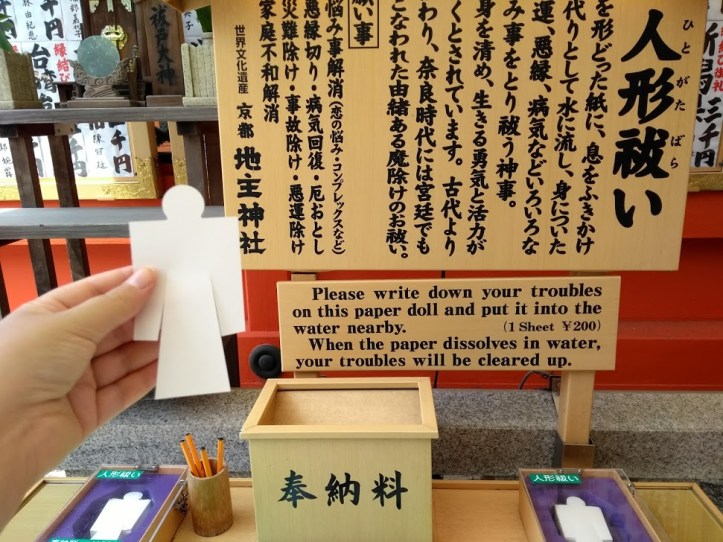 人形祓い
ひとがたばら
を形どった紙に、息をふきかけ
代りとして水に流し、身についた
運、悪縁、病気などいろいろな
み事をとり祓う神事。
身を清め、生きる勇気と活力が
くとされています。古代より
わり、奈良時代には宮廷でも
こなわれた由緒ある魔除けのお祓い。
願い事
悩み事解消(恋の悩み・コンプレックスなど)
悪縁切り・病気回復・厄おとし
災難除け・事故除け・悪運除け
家庭不和解消
世界文化遺産 京都 地主神社
Please write down your troubles
on this paper doll and put it into the
water nearby. (1 Sheet ¥200)
When the paper dissolves in water,
your troubles will be cleared up.
奉納料
人形祓い
人形祓い
祓戸大神
縁結び
千円
三千円